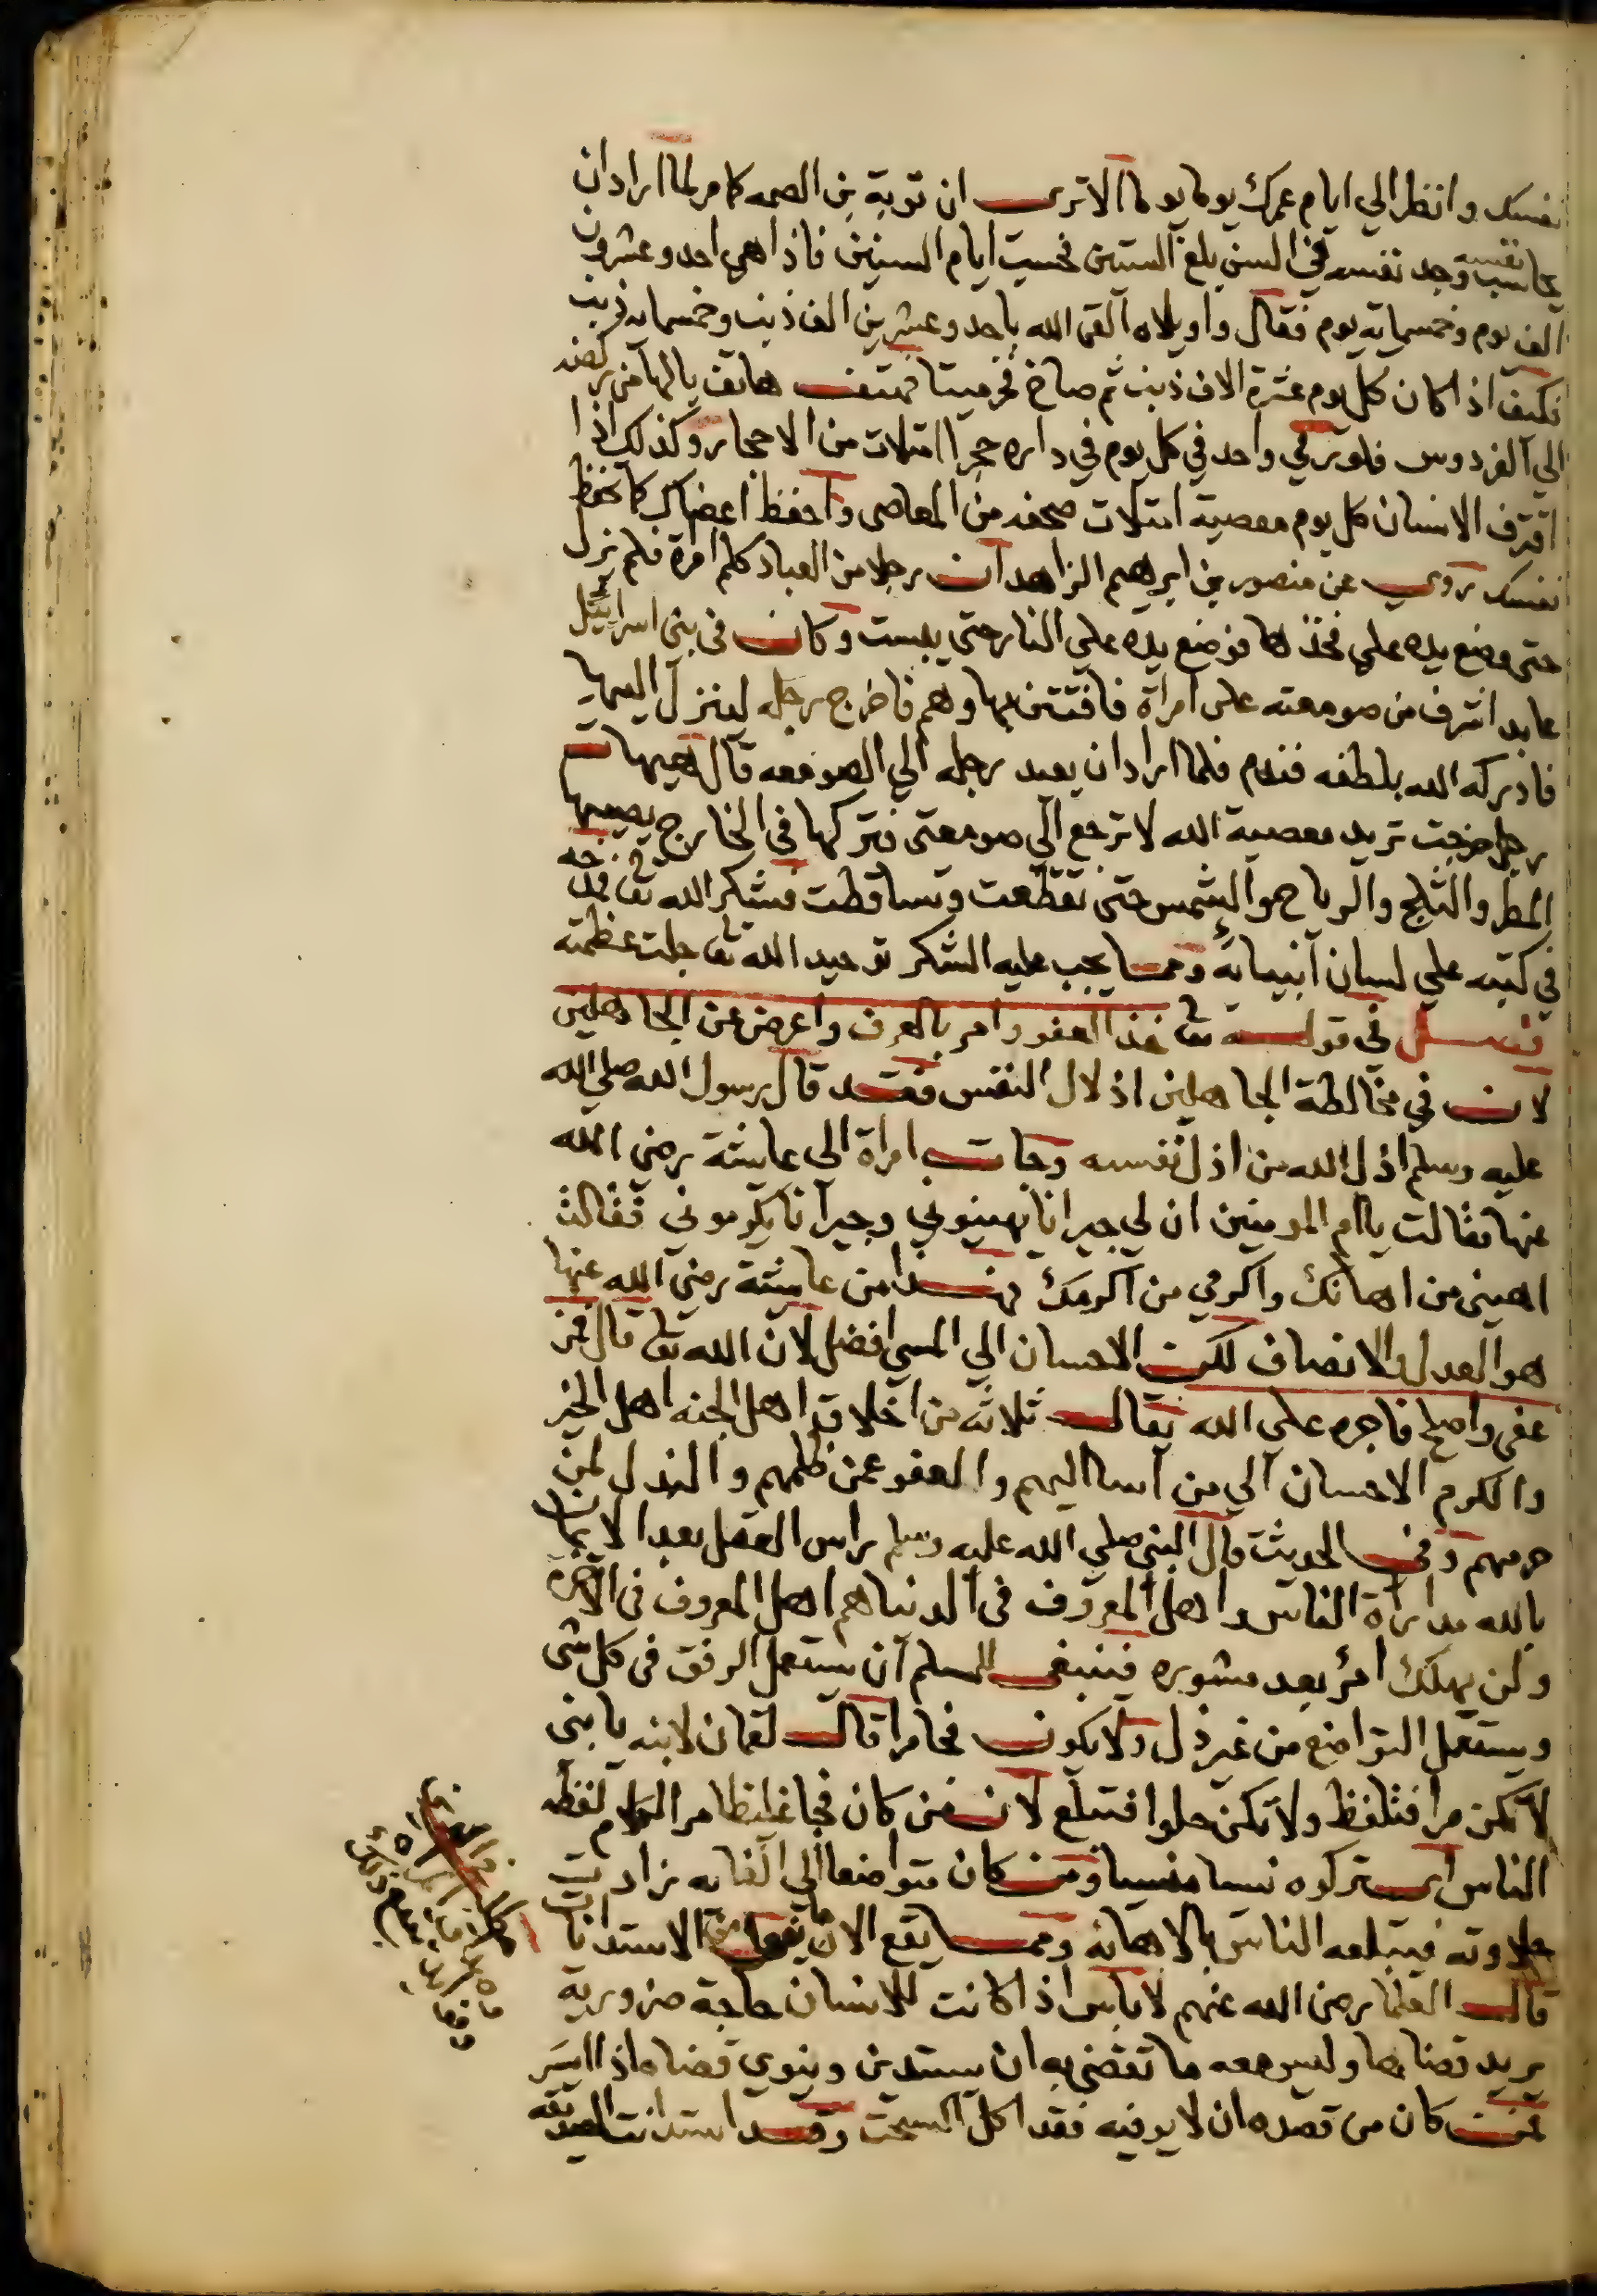 نفسك وانظر الي ايام عمرك يوما يوما الا ترى ان توبة بن الصمه كامر لما اراد ان
يحاسب نفسه وجد نفسه في السن بلغ الستين فحسب ايام السنين فاذا هي احد وعشرون
الف يوم وخمسماية يوم فقال واويلاه القى الله باحد وعشرين الف ذنب وخمسماية ذنب
فكيف اذا كان كل يوم عشرة الاف ذنب ثم صاح فخر ميتا فهتف هاتف يالها من ركضه
الي الفردوس فلو رمي واحد في كل يوم في داره حجرا امتلات من الاحجار وكذلك اذا
اقترف الانسان كل يوم معصية امتلات صحفه من المعاصي واحفظ اعضاك كما تحفظ
نفسك روي عن منصور بن ابرهيم الزاهد ان رجلا من العباد كلم امراة فلم يزل
حتى وضع يده على فخذها فوضع يده علي النار حتى يبست وكان في بني اسرائيل
عابد اشرف من صومعته على امراة فافتتن بها وهم فاخرج رجله لينزل اليها
فادركه الله بلطفه فندم فلما اراد ان يعيد رجله الي الصومعه قال هيهات
رجل خرجت تريد معصية الله لا ترجع الى صومعتى فتركها في الخارج يصيبها
المطر والثلج والرياح والشمس حتى تقطعت وتساقطت فشكر الله تعا فمدحه
في كتبه علي لسان انبيائه ومما يجب عليه الشكر توحيد الله تعا جلت عظمته
فصل في قوله تعا خذ العفو وامر بالعرف واعرض عن الجاهلين
لان في مخالطة الجاهلين اذلال النفس فقد قال رسول الله صلي الله
عليه وسلم اذل الله من اذل نفسه وجات امراة الى عايشة رضي الله
عنها فقالت يا ام المومنين ان لي جيرانا يهينوني وجيرانا يكرموني فقالت
اهيني من اهانك واكرمي من اكرمك فهذا من عايشة رضي الله عنها
هو العدل والانصاف لكن الاحسان الي المسي افضل لان الله تعا قال فمن
عفى واصلح فاجره على الله يقال ثلاثه من اخلاق اهل الجنه اهل الخير
والكرم الاحسان الي من اسا اليهم والعفو عمن ظلمهم والبذل لمن
حرمهم وفي الحديث قال النبي صلي الله عليه وسلم راس العقل بعد الايمان
بالله مداراة الناس واهل المعروف في الدنيا هم اهل المعروف في الاخرة
ولن يهلك امرؤ بعد مشوره فينبغي للمسلم ان يستعمل الرفق في كل شي
ويستعمل التواضع من غير ذل ولا يكون مرا قال لقمان لابنه يا بني
لا تكن مرا فتلفظ ولا تكن حلوا فتبلع لان من كان غليظا مر الكلام لفظه
الناس اي تركوه نسيا منسيا ومن كان متواضعا الي الغايه زادت
حلاوته فيبتلعه الناس بالاهانه ومما يقع الان الاستدانات
قالت العلما رضي الله عنهم لا باس اذا كانت للانسان حاجة ضرورية
يريد قضاها وليس معه ما تقضي به ان يستدين وينوي قضاه اذا ايسر
فمن كان من قصده ان لا يوفيه فقد اكل السحت وقد استدانت الصديقه